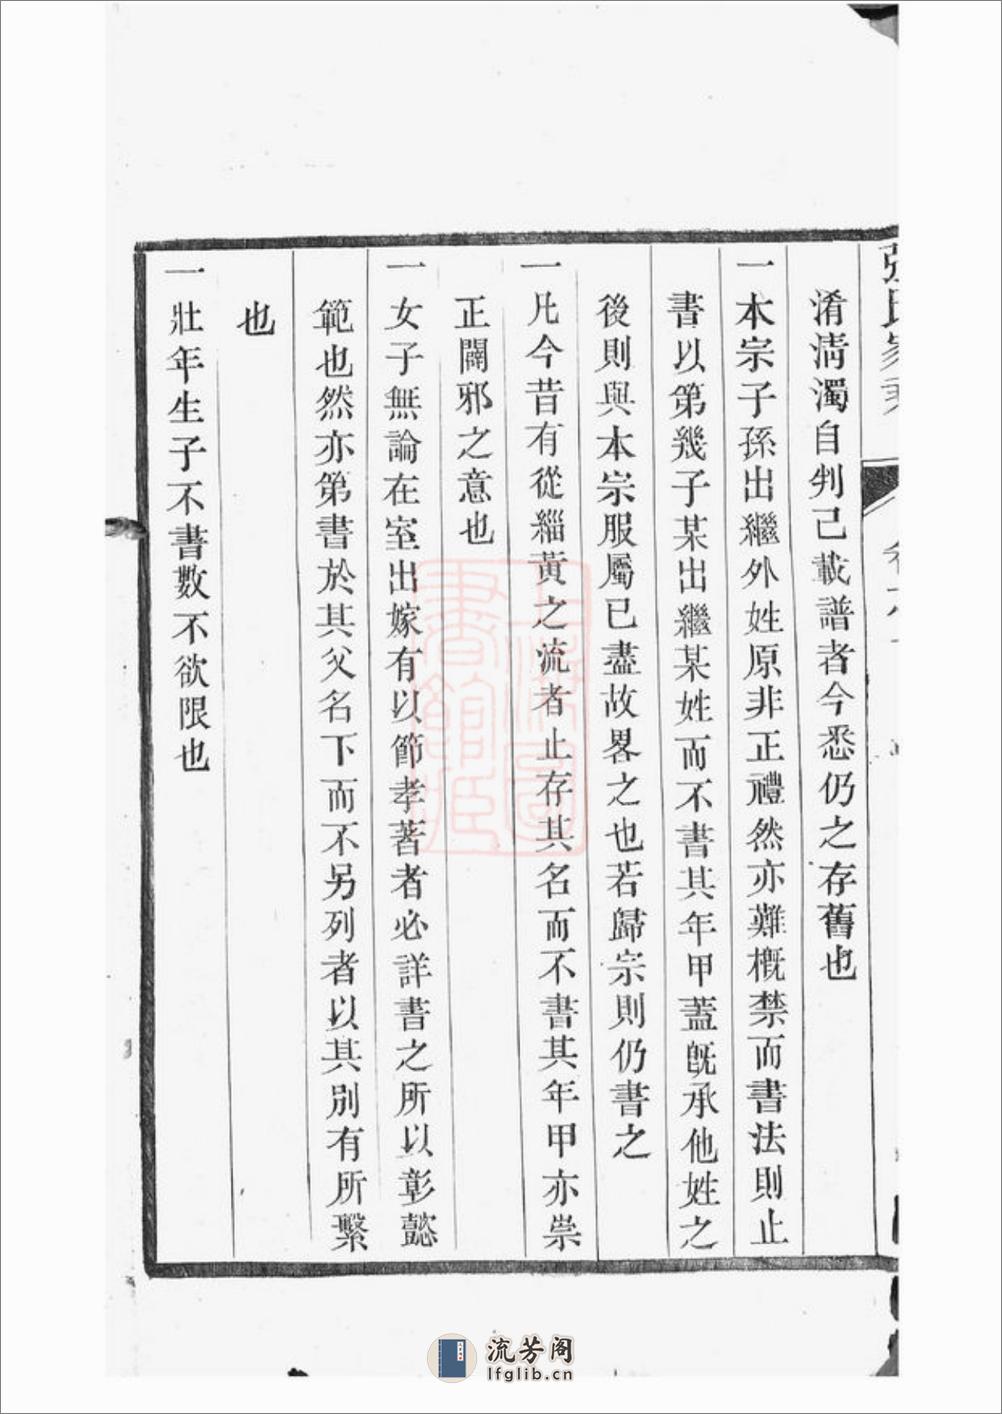 張氏家乘
淆淸濁自判己載譜者今悉仍之存舊也
一本宗子孫出繼外姓原非正禮然亦難槪禁而書法則止
書以第幾子某出繼某姓而不書其年甲蓋旣承他姓之
後則與本宗服屬已盡故畧之也若歸宗則仍書之
一凡今昔有從緇黃之流者止存其名而不書其年甲亦崇
正闢邪之意也
一女子無論在室出嫁有以節孝著者必詳書之所以彰懿
範也然亦第書於其父名下而不另列者以其別有所繫
也
一壯年生子不書數不欲限也
流芳阁
lfglib.cn